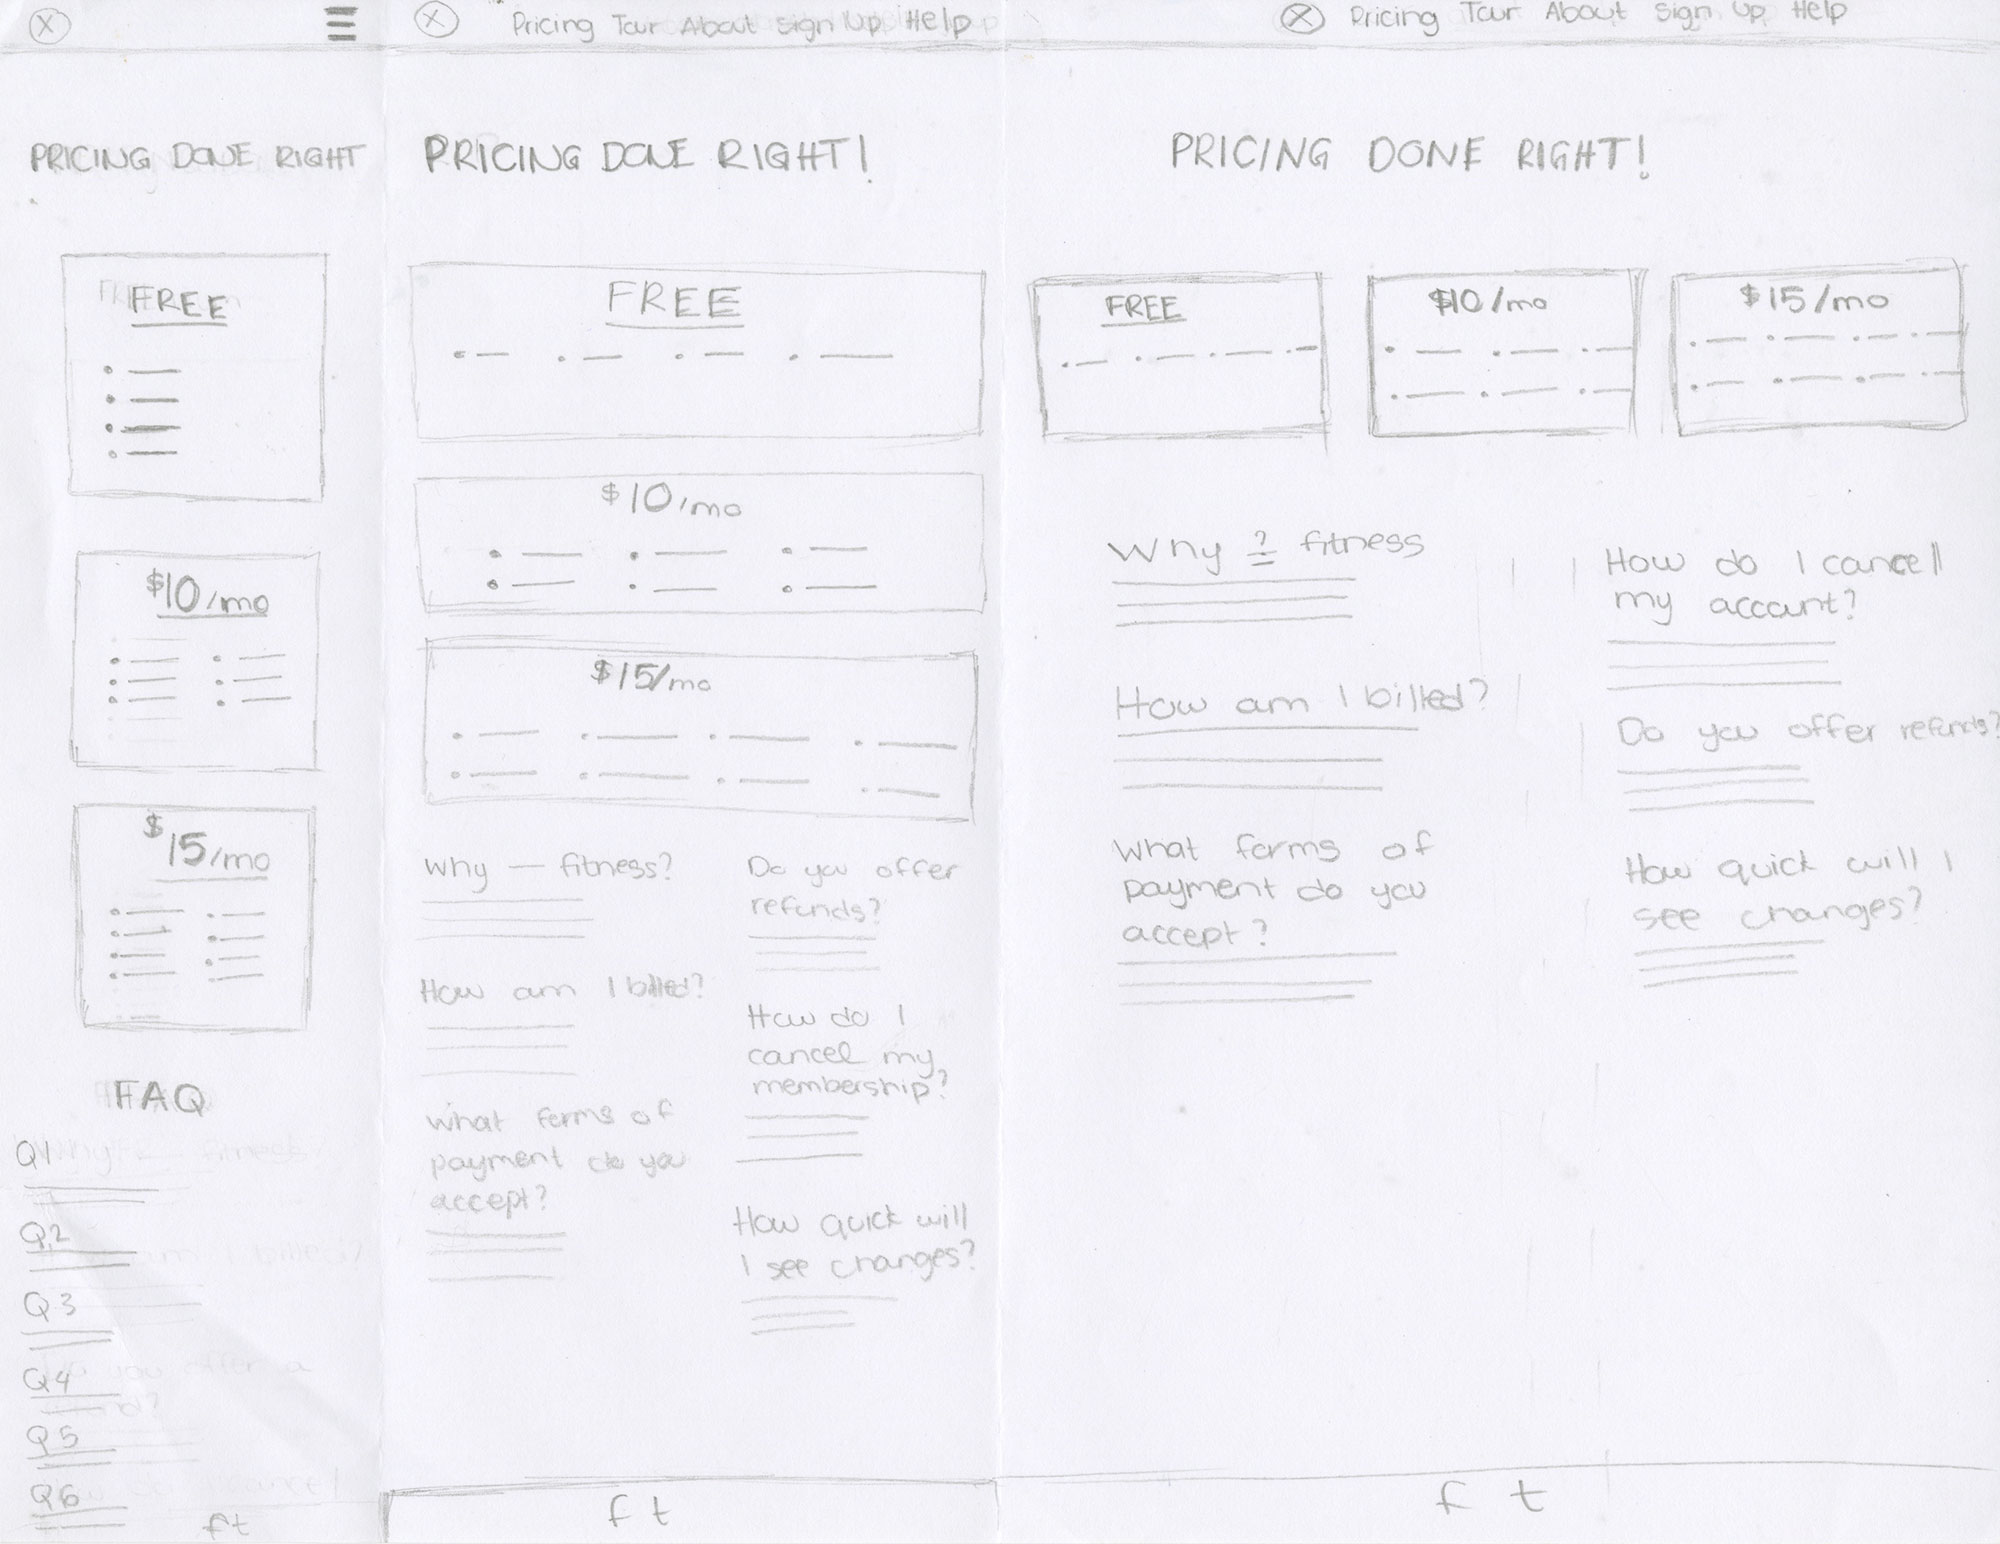 PRICING DONE RIGHT
FREE
$10/mo
$15/mo
FAQ
Q1
Q2
Q3
Q4
Q5
Q6
f t
Pricing Tour About Sign Up Help
PRICING DONE RIGHT!
FREE
$10/mo
$15/mo
Why — fitness?
How am I billed?
What forms of
payment do you
accept?
Do you offer
refunds?
How do I
cancel my
membership?
How quick will
I see changes?
f t
Pricing Tour About Sign Up Help
PRICING DONE RIGHT!
FREE
$10/mo
$15/mo
Why ? fitness
How am I billed?
What forms of
payment do you
accept?
How do I cancel
my account?
Do you offer refunds?
How quick will I
see changes?
f t